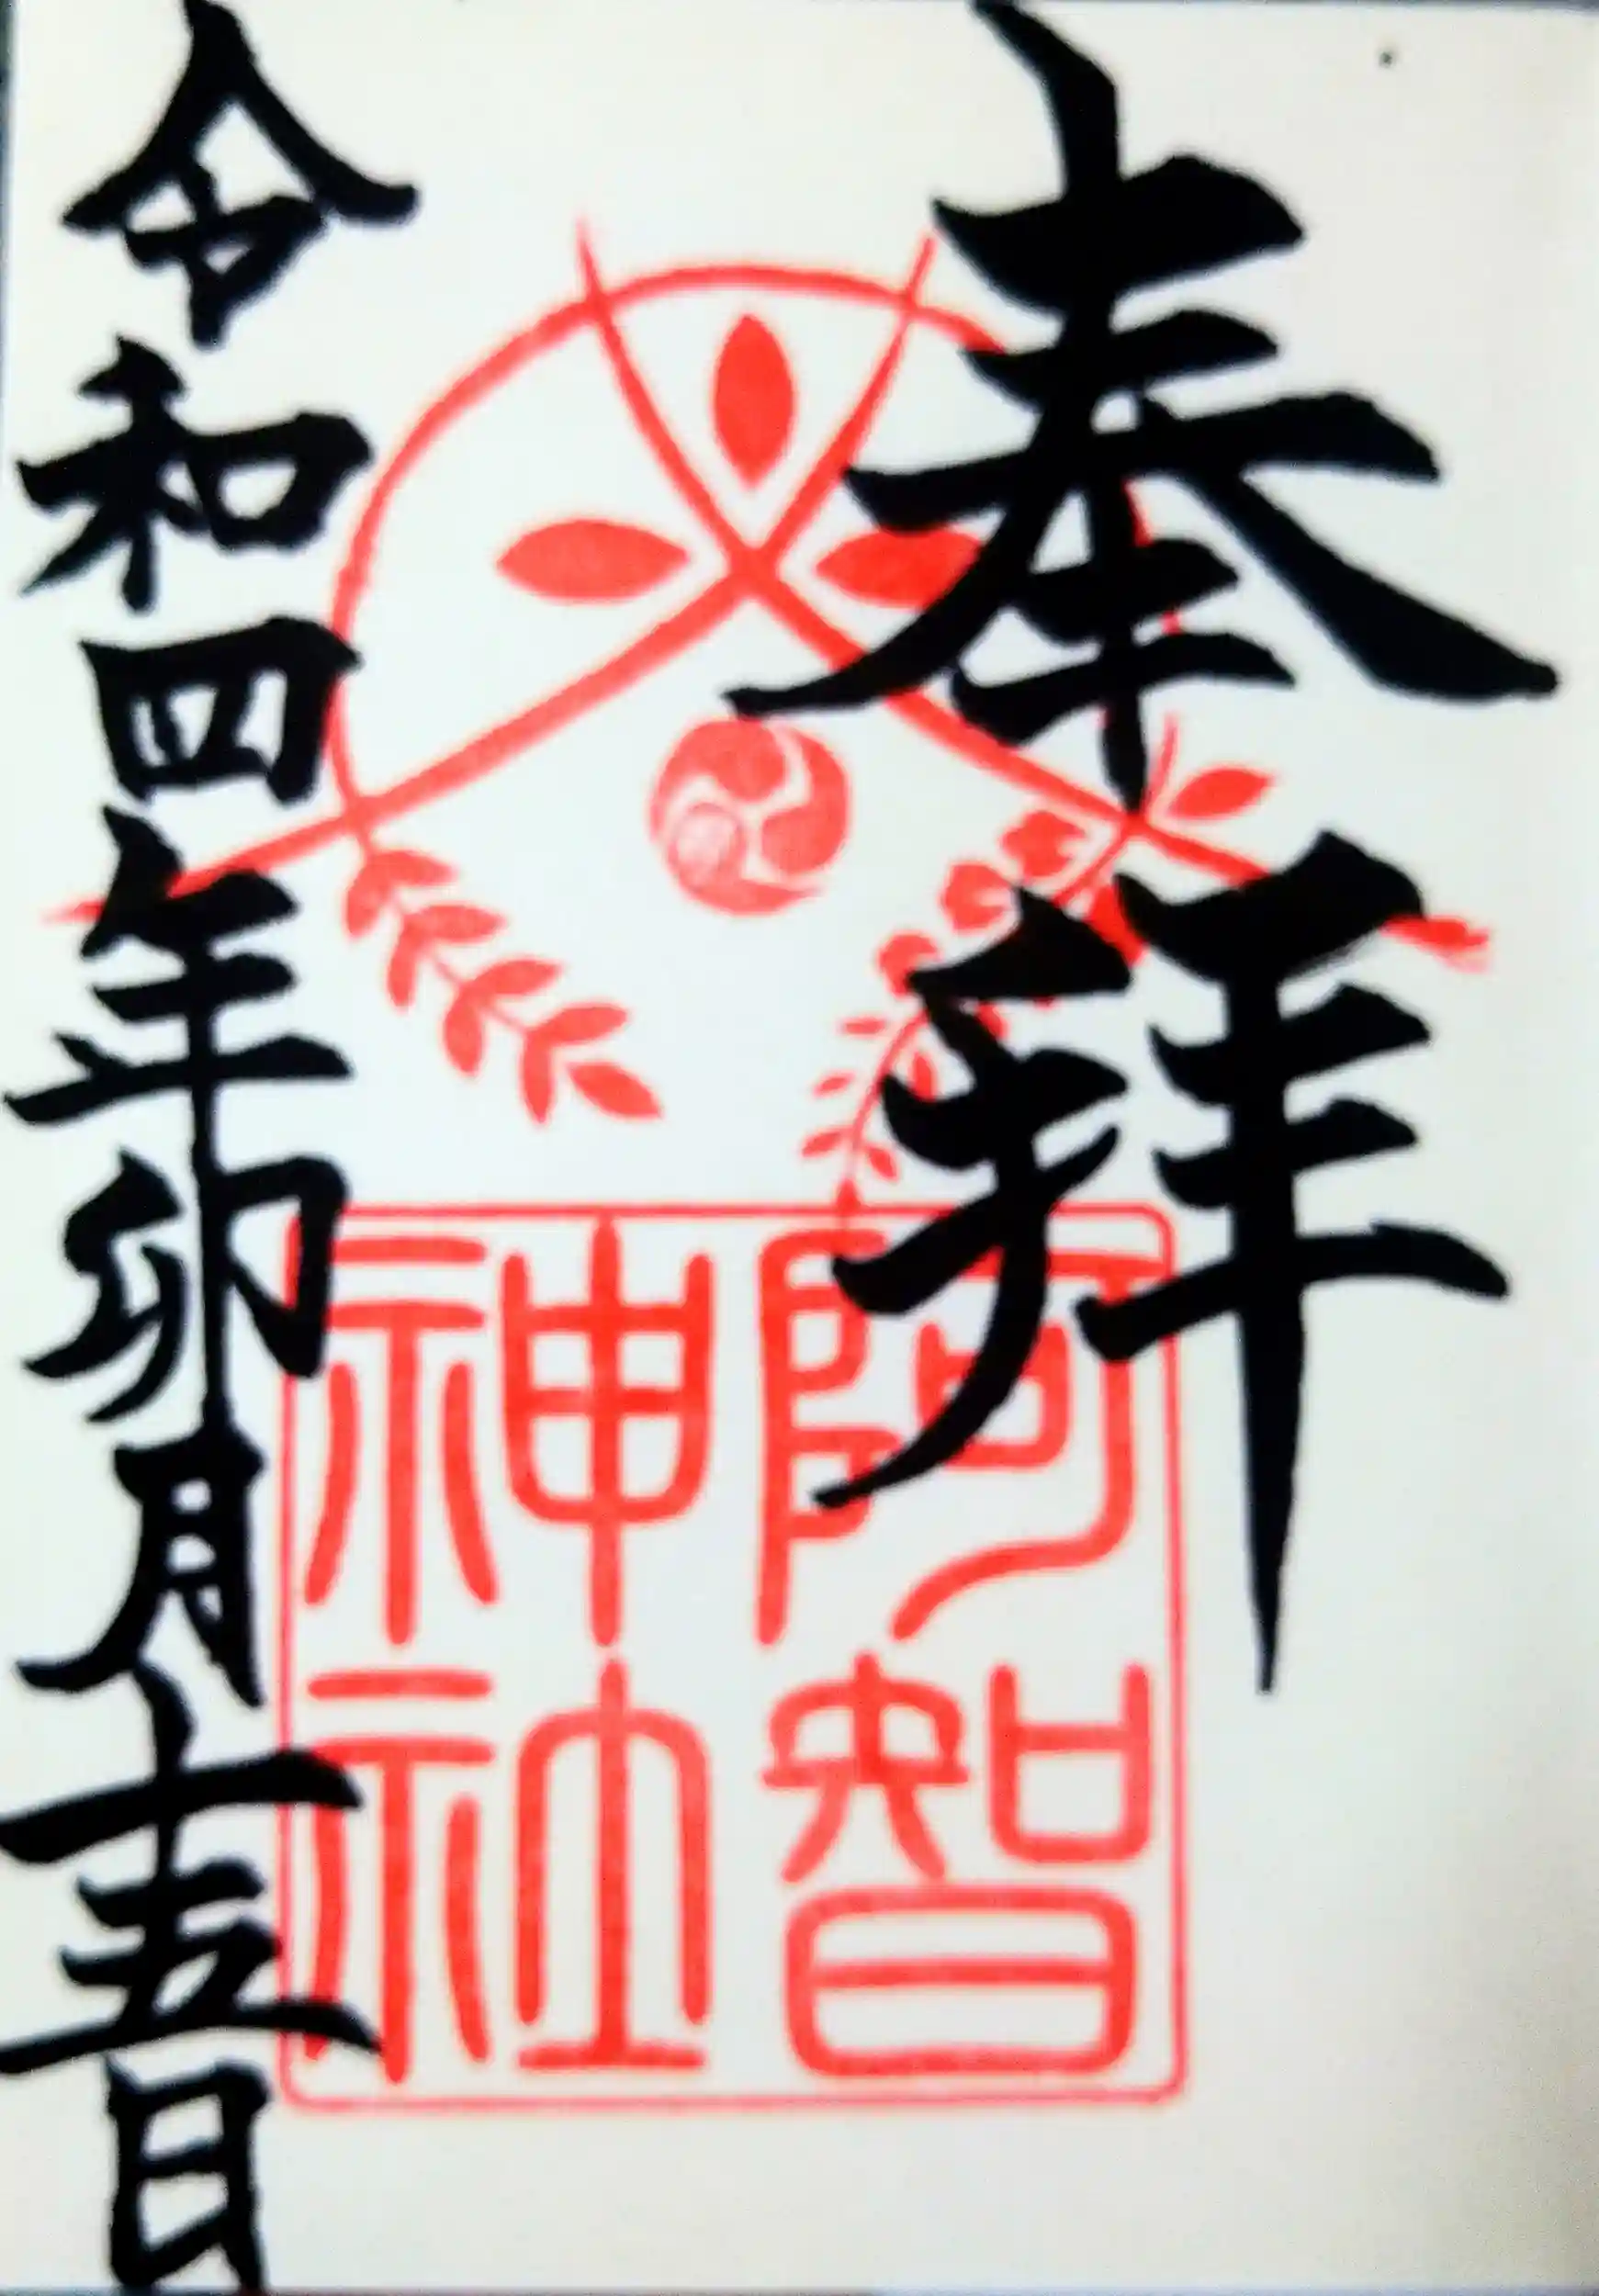 奉拝
阿智
神社
令和四年卯月十五日